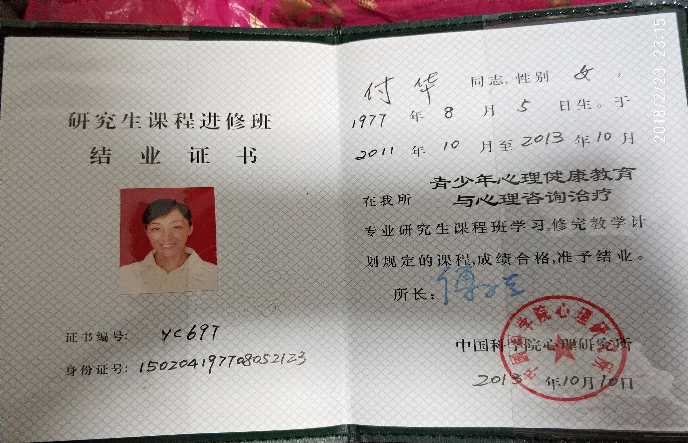 研究生课程进修班
结业证书
证书编号: YC697
身份证号: 150204197708052123
付华 同志,性别 女,
1977 年 8 月 5 日生。于
2011 年 10 月至 2013 年 10 月
在我所 青少年心理健康教育
与心理咨询治疗
专业研究生课程班学习,修完教学计
划规定的课程,成绩合格,准予结业。
所长:
中国科学院心理研究所
2013 年10月10日
中国科学院心理研究所
2018/2/23 23:15